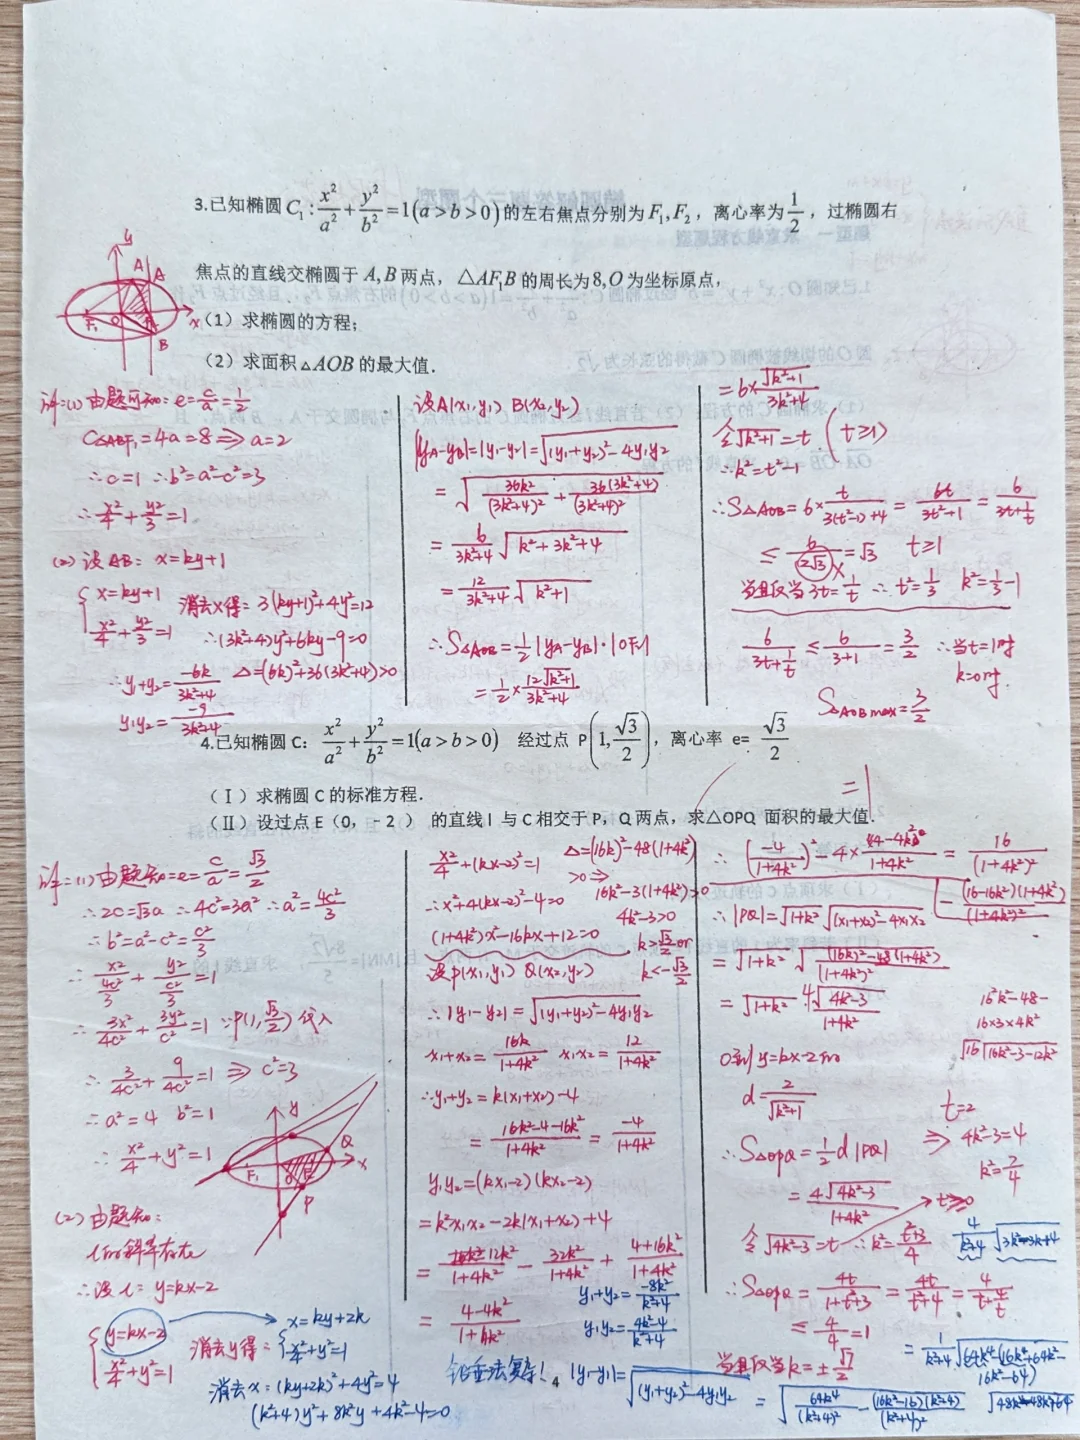 3.已知椭圆 C₁: x²/a² + y²/b² = 1(a>b>0) 的左右焦点分别为 F₁,F₂，离心率为 1/2，过椭圆右
焦点的直线交椭圆于 A,B 两点，△AF₁B 的周长为8,O 为坐标原点,
（1）求椭圆的方程;
（2）求面积△AOB 的最大值.
解:(1) 由题可知: e=c/a=1/2
C△ABF₁=4a=8⇒a=2
∴c=1 ∴b²=a²-c²=3
∴x²/4+y²/3=1
(2) 设AB: x=ky+1
{x=ky+1
x²/4+y²/3=1
消去x得: 3(ky+1)²+4y²=12
∴(3k²+4)y²+6ky-9=0
∴y₁+y₂=-6k/(3k²+4) Δ=(6k)²+36(3k²+4)>0
y₁y₂=-9/(3k²+4)
设A(x₁,y₁) B(x₂,y₂)
|yA-yB|=|y₁-y₂|=√((y₁+y₂)²-4y₁y₂)
=√(36k²/(3k²+4)²+36(3k²+4)/(3k²+4)²)
=6/(3k²+4)√(k²+3k²+4)
=12/(3k²+4)√(k²+1)
∴S△AOB=1/2|yA-yB|·|OF₂|
=1/2×12√(k²+1)/(3k²+4)
=6×√(k²+1)/(3k²+4)
令√(k²+1)=t (t≥1)
∴k²=t²-1
∴S△AOB=6×t/(3(t²-1)+4)=6t/(3t²+1)=6/(3t+1/t)
≤6/(2√3)=√3 t≥1
当且仅当3t=1/t ∴t²=1/3 k²=1/3-1
6/(3t+1/t)≤6/(3+1)=3/2 ∴当t=1时
k=0时.
S△AOBmax=3/2
4.已知椭圆 C: x²/a²+y²/b²=1(a>b>0) 经过点 P(1,√3/2)，离心率 e=√3/2
（Ⅰ）求椭圆 C 的标准方程.
（Ⅱ）设过点 E（0，-2 ） 的直线 l 与 C 相交于 P，Q 两点，求△OPQ 面积的最大值.
=1
解:(1)由题知:e=c/a=√3/2
∴2c=√3a ∴4c²=3a² ∴a²=4c²/3
∴b²=a²-c²=c²/3
∴x²/(4c²/3)+y²/(c²/3)=1
∴3x²/4c²+3y²/c²=1 ∵P(1,√3/2)代入
∴3/4c²+9/4c²=1⇒c²=3
∴a²=4 b²=1
∴x²/4+y²=1
(2) 由题知:
l的斜率存在
∴设l: y=kx-2
{y=kx-2
x²/4+y²=1
消去y得:
x=ky+2k
{x²/4+y²=1
消去x: (ky+2k)²+4y²=4
(k²+4)y²+8k²y+4k²-4=0
x²/4+(kx-2)²=1
∴x²+4(kx-2)²-4=0
(1+4k²)x²-16kx+12=0
Δ=(16k)²-48(1+4k²)
>0⇒
16k²-3(1+4k²)>0
4k²-3>0
k>√3/2 or
k<-√3/2
设P(x₁,y₁) Q(x₂,y₂)
∴|y₁-y₂|=√((y₁+y₂)²-4y₁y₂)
x₁+x₂=16k/(1+4k²) x₁x₂=12/(1+4k²)
∴y₁+y₂=k(x₁+x₂)-4
=(16k²-4-16k²)/(1+4k²)=-4/(1+4k²)
y₁y₂=(kx₁-2)(kx₂-2)
=k²x₁x₂-2k(x₁+x₂)+4
=12k²/(1+4k²)-32k²/(1+4k²)+(4+16k²)/(1+4k²)
=(4-4k²)/(1+4k²)
y₁+y₂=-8k²/(k²+4)
y₁y₂=(4k²-4)/(k²+4)
铅垂法复杂!
|y₁-y₂|=√((y₁+y₂)²-4y₁y₂)=√(64k⁴/(k²+4)²-(16k²-16)(k²+4)/(k²+4)²)
∴(-4/(1+4k²))²-4×(4-4k²)/(1+4k²)=16/(1+4k²)²
-(16-16k²)(1+4k²)/(1+4k²)²
∴|PQ|=√(1+k²)√((x₁+x₂)²-4x₁x₂)
=√(1+k²)√(((16k)²-48(1+4k²))/(1+4k²)²)
=√(1+k²)4√(4k²-3)/(1+4k²)
16²k²-48-
16×3×4k²
√16(16k²-3-12k²)
O到y=kx-2的
d=2/√(k²+1)
t=2
⇒4k²-3=4
k²=7/4
∴S△OPQ=1/2d|PQ|
=4√(4k²-3)/(1+4k²)
t≥0
令√(4k²-3)=t ∴k²=(t²+3)/4
∴S△OPQ=4t/(1+t²+3)=4t/(t²+4)=4/(t+4/t)
≤4/4=1
当且仅当k=±√7/2
4